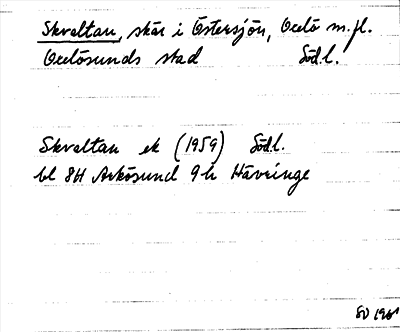 Skvaltan, skär i Östersjön, Oxelö m.fl.
Oxelösunds stad Södl.
Skvaltan ek (1959) Södl.
bl 8H Arkösund 9h Hävringe